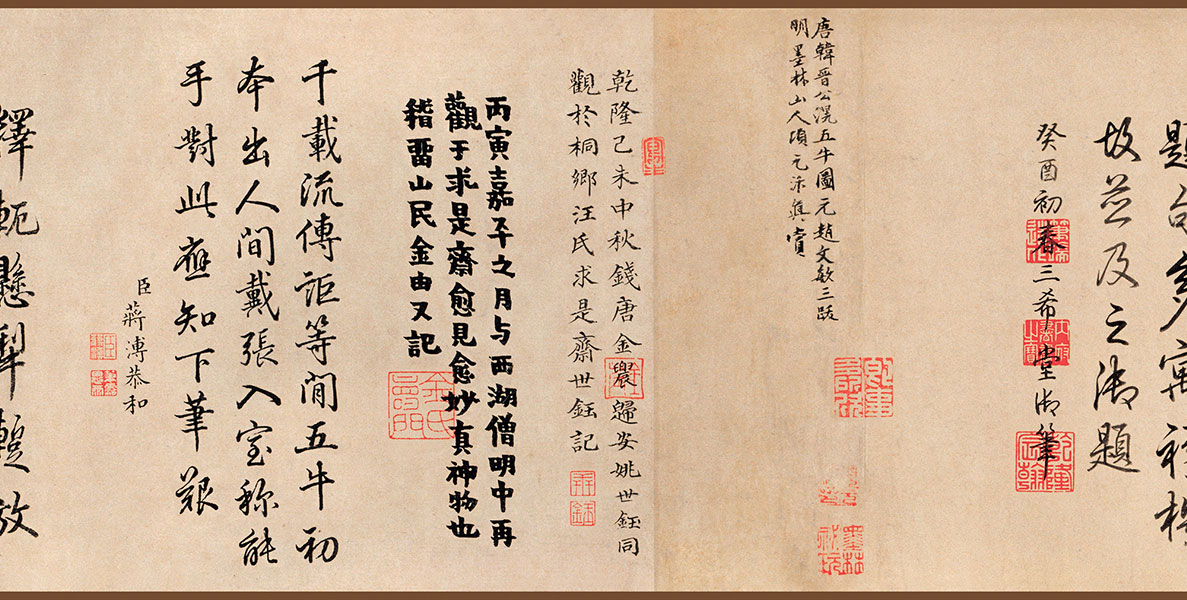 題句多寓
故並及之御題
癸酉初春三希堂御筆
乾隆宸翰
唐韓晉公滉五牛圖元趙文敏三跋
明墨林山人項元汴真賞
墨林祕玩
乾隆己未中秋錢唐金農歸安姚世鈺同
觀於桐鄉汪氏求是齋世鈺記
丙寅嘉平之月与西湖僧明中再
觀于求是齋愈見愈妙真神物也
稽畱山民金由又記
千載流傳詎等閒五牛初
本出人間戴張入室称能
手對此應知下筆艱
臣蔣溥恭和
軛懸犁